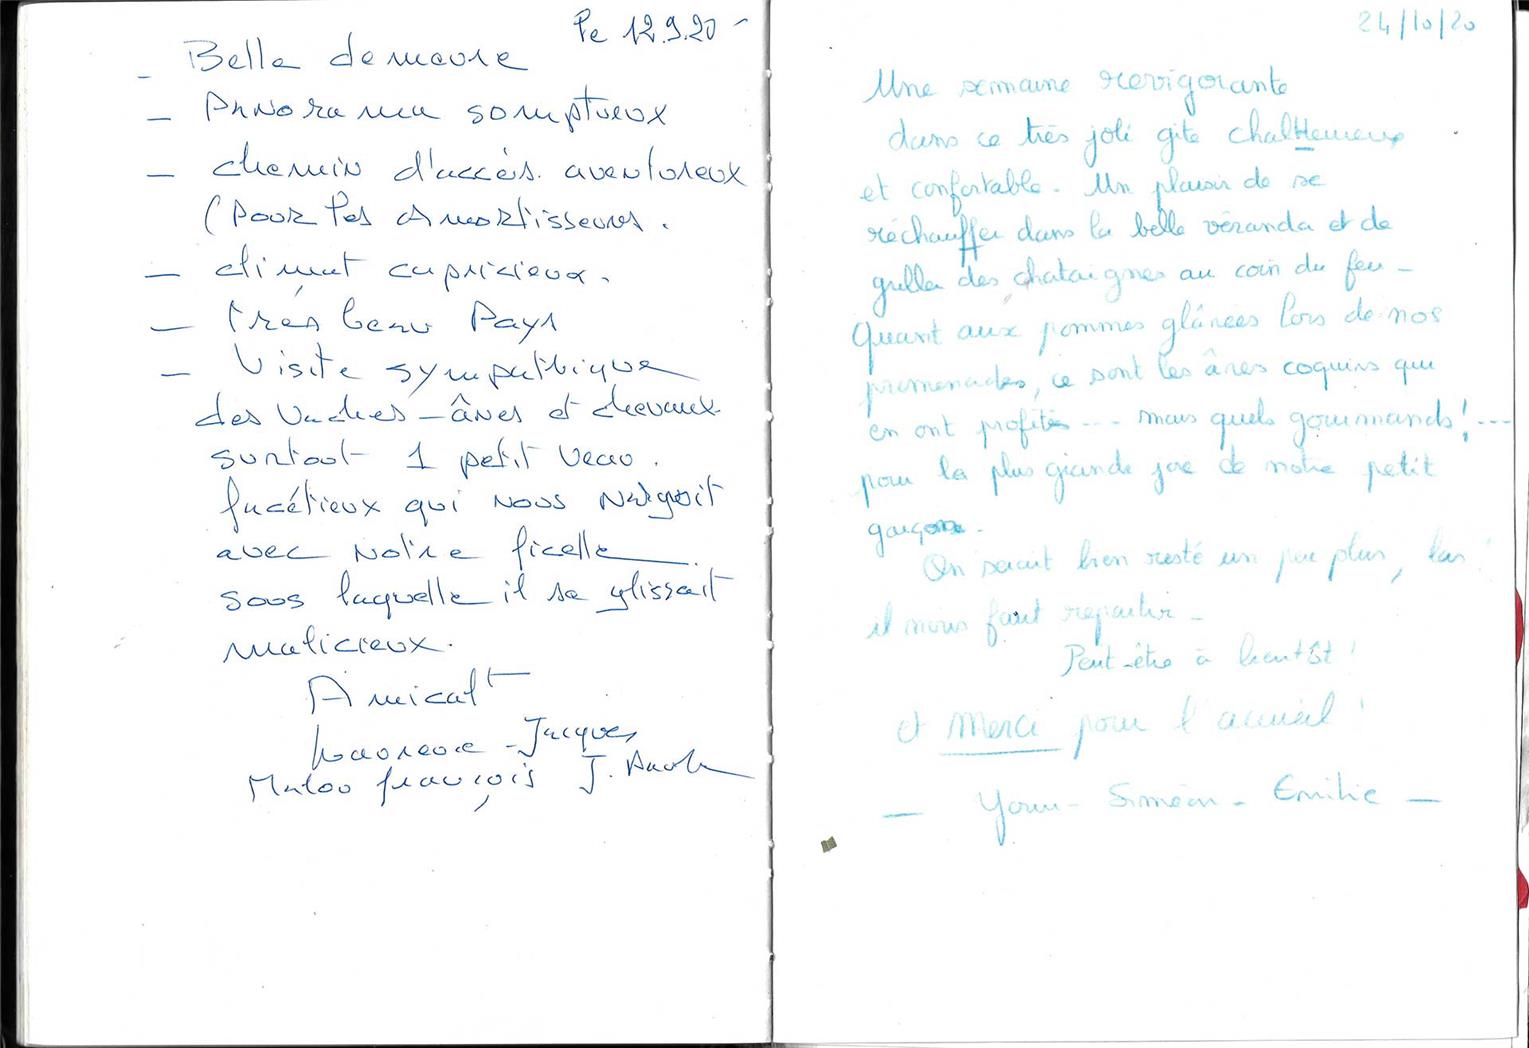 le 12.9.20 -
- Belle demeure
- Panorama somptueux
- chemin d'accès. aventureux
(pour les amortisseurs.
- climat capricieux.
- très beau Pays
- Visite sympathique
des vaches - ânes et chevaux
surtout 1 petit veau.
facétieux qui nous narguait
avec notre ficelle
sous laquelle il se glissait
malicieux.
Amicalt
Laurence - Jacques
Malou françois J.
24/10/20
Une semaine revigorante
dans ce très joli gite chaleureux
et confortable. Un plaisir de se
réchauffer dans la belle véranda et de
griller des chataignes au coin du feu -
Quant aux pommes glânées lors de nos
promenades, ce sont les ânes coquins qui
en ont profités ... mais quels gourmands! ...
pour la plus grande joie de notre petit
garçon.
On serait bien resté un peu plus, las!
il nous faut repartir -
Peut-être à bientôt!
et Merci pour l'accueil!
- Yann - Siméon - Emilie -